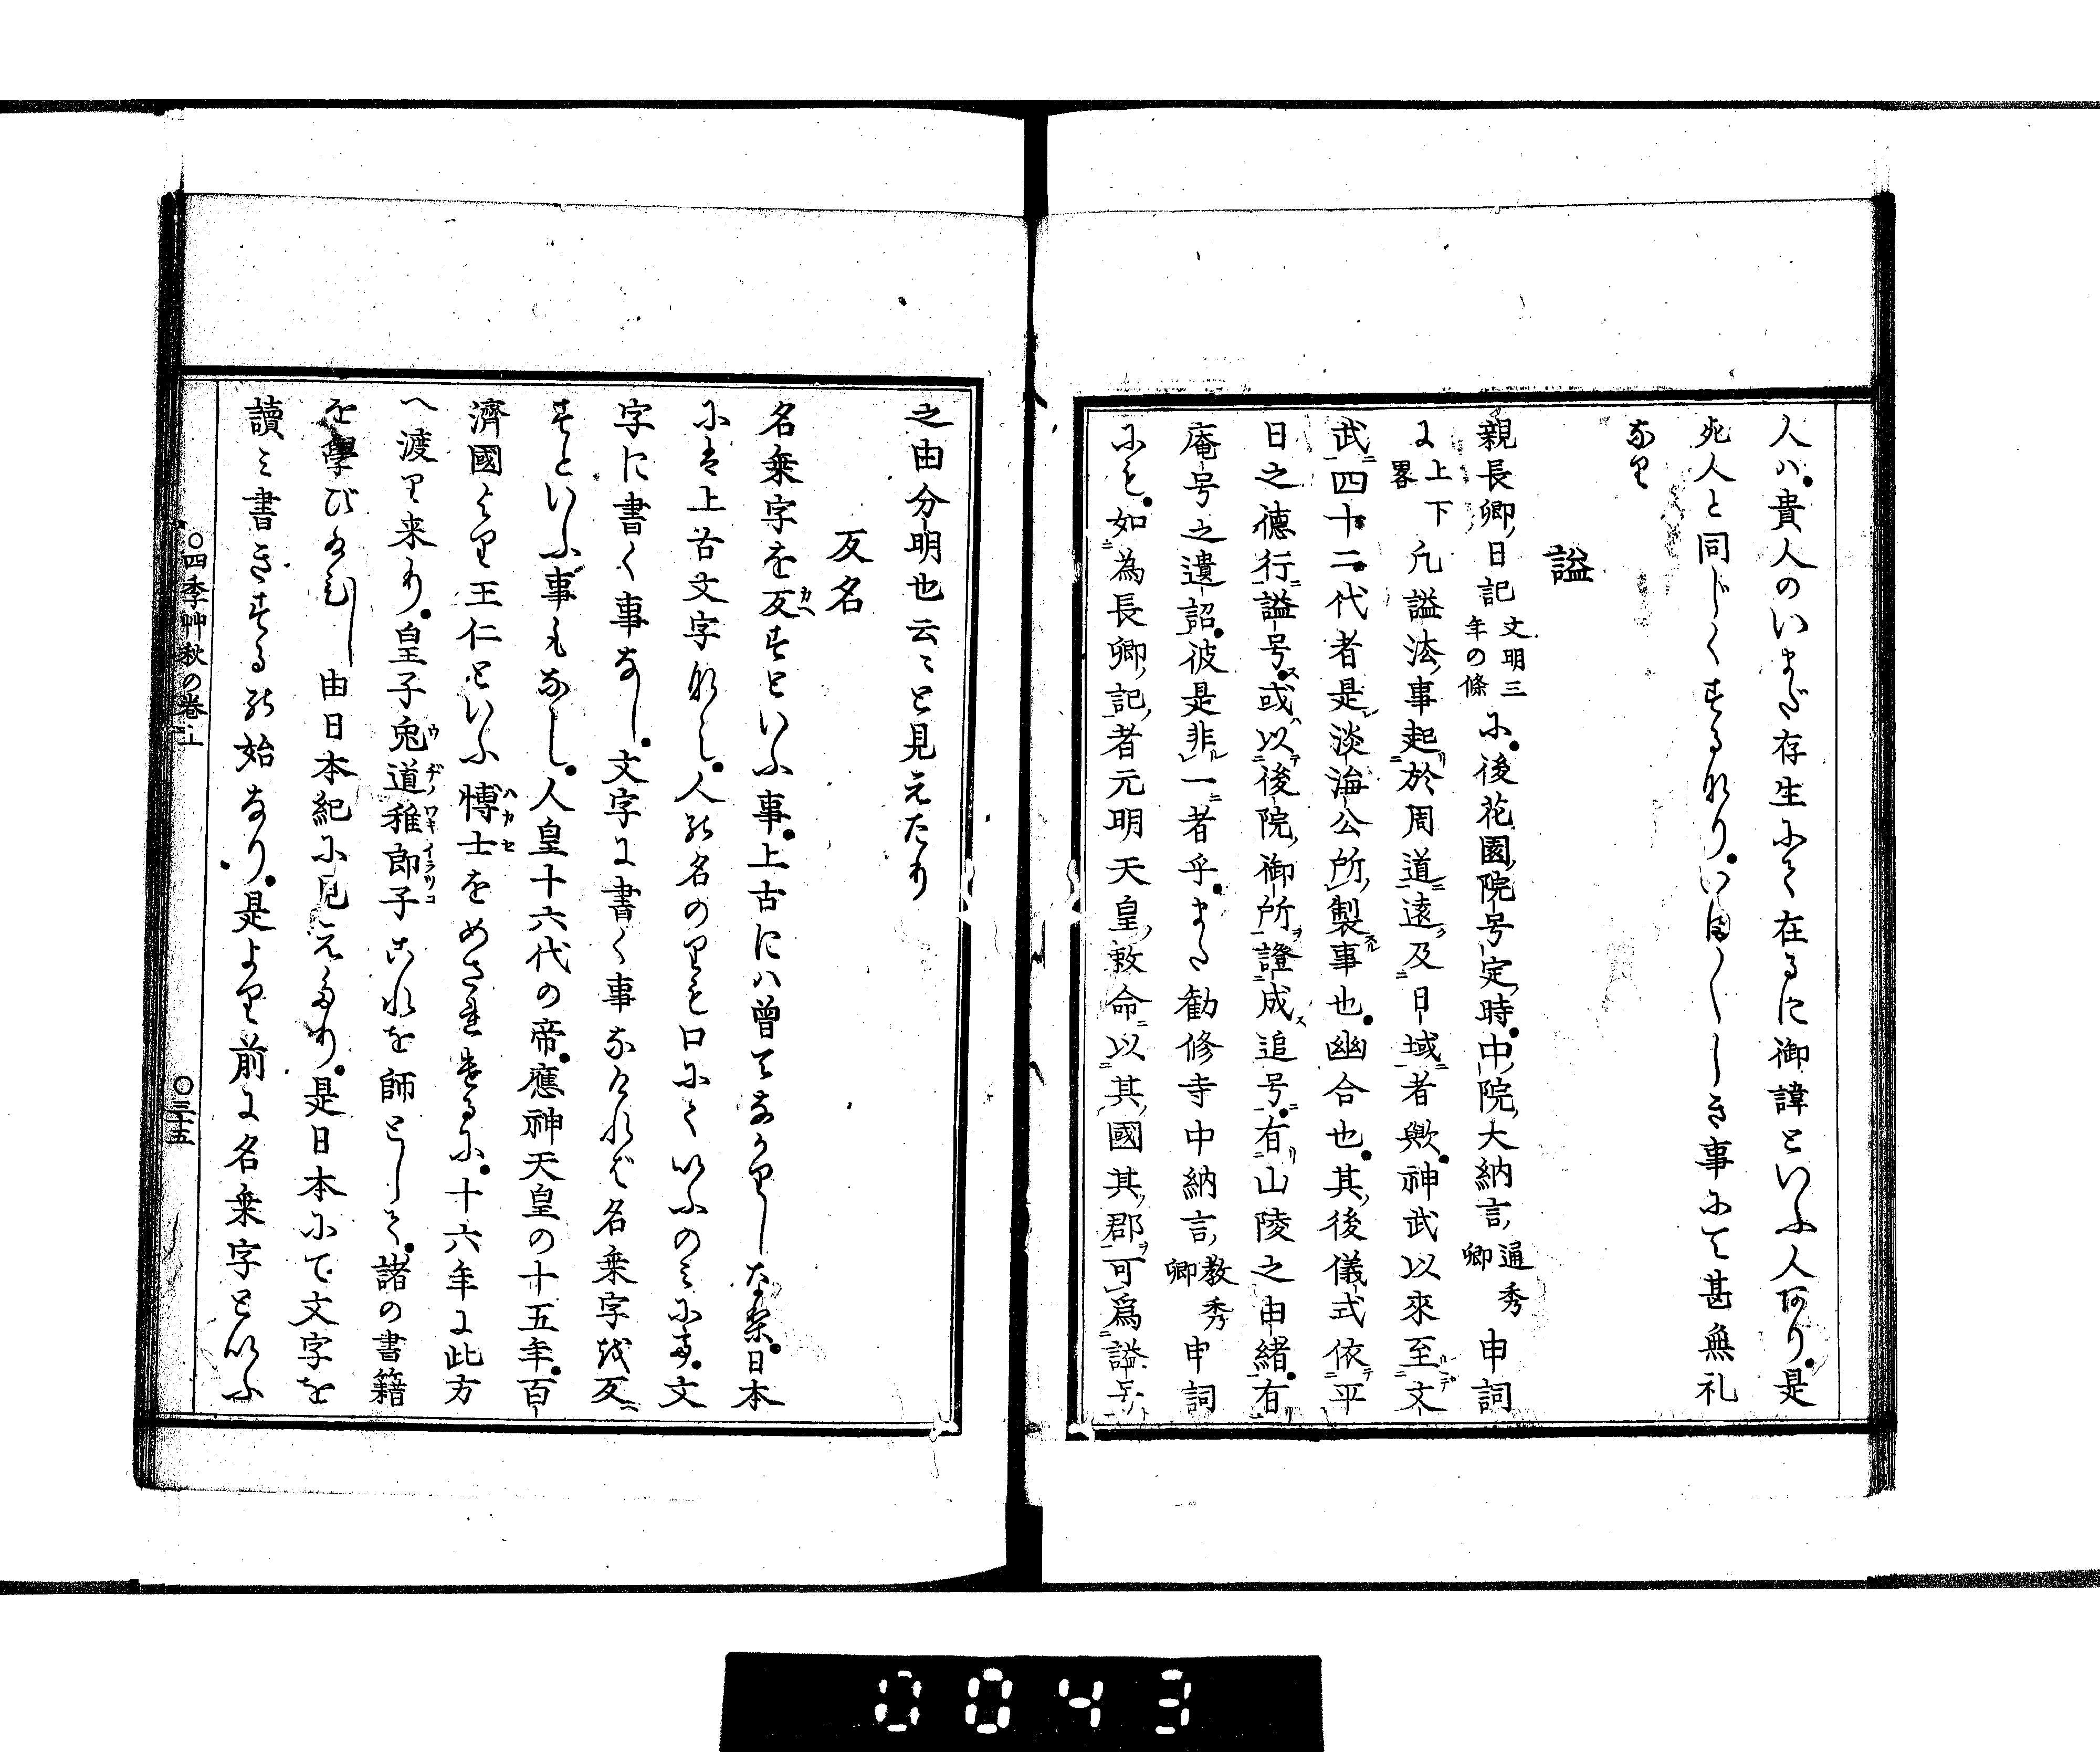 人ハ貴人のいまだ存生にて在るに御諱といふ人あり是
死人と同じくするなりいまいましき事にて甚無礼
なり
謚
親長卿日記文明三年の條に後花園院号定時中院大納言通秀卿申詞
に上下畧凡謚法事起於周道遠及日域者歟神武以來至文
武四十二代者是淡海公所製事也幽合也其後儀式依平
日之德行謚号或以後院御所證成追号有山陵之由緒有
庵号之遺詔彼是非一者乎また勧修寺中納言教秀卿申詞
にも如為長卿記者元明天皇敕命以其國其郡可爲謚号
之由分明也云〻と見えたり
反名
名乗字を反すといふ事上古にハ曾てなかりし事なり日本
にハ上古文字なし人の名のりも口にていふのみにて文
字に書く事なし文字に書く事なければ名乗字を反
すといふ事もなし人皇十六代の帝應神天皇の十五年百
濟國より王仁といふ博士をめされけるに十六年に此方
へ渡り来り皇子兎道稚郎子これを師として諸の書籍
を學びたまひし由日本紀に見えたり是日本にて文字を
讀み書きする始なり是より前に名乗字といふ
○四季艸秋の卷上
○三十五
0043